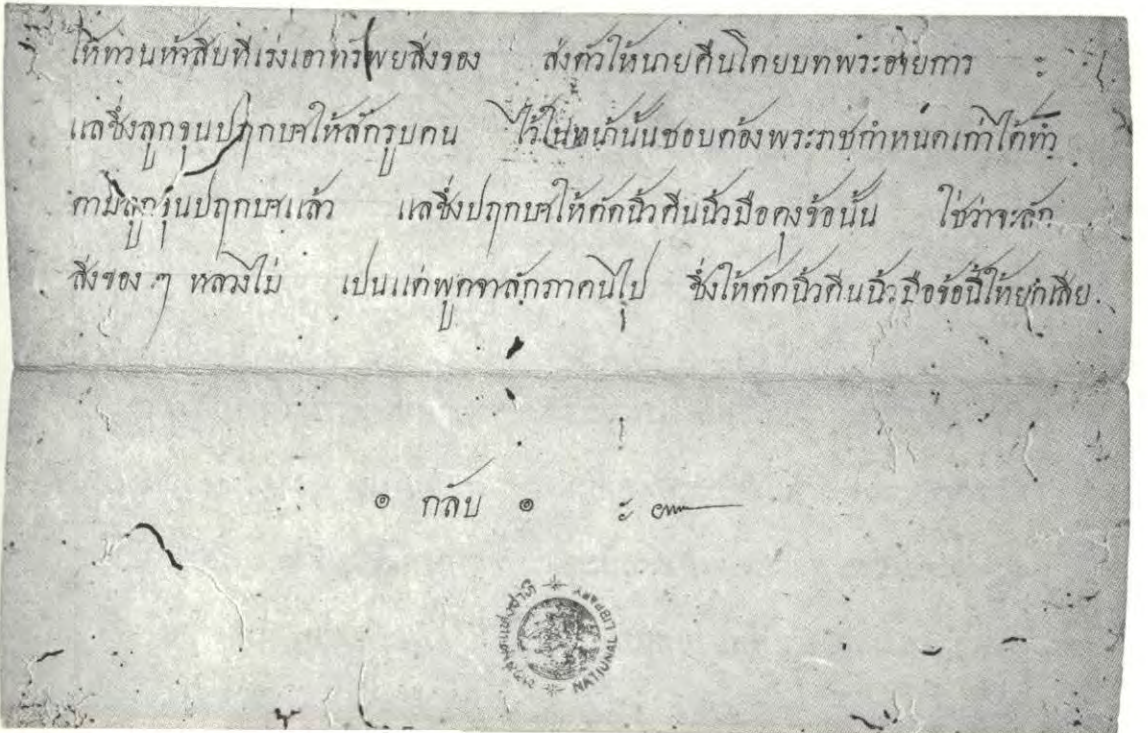 ให้ทวนห้าสิบทีเร่งเอาทรัพยสิ่งของ ส่งตัวให้นายคืนโดยบทพระอายการ
แลซึ่งลูกขุนปฤกษาให้สักรูบคน ไว้ในหน้านั้นชอบด้องพระราชกำหนดเก่าได้ทำ
ตามลูกขุนปฤกษาแล้ว แลซึ่งปฤกษาให้ตัดนิ้วตีนนิ้วมือดุงข้อนั้น ใช่ว่าจะลัก
สิ่งของ ๆ หลวงไม่ เปนแต่พูดจาลักภาคนไป ซึ่งให้ตัดนิ้วตีนนิ้วมือข้อนี้ให้ยกเสีย
๏ กลับ ๏
หอสมุดแห่งชาติ
NATIONAL LIBRARY